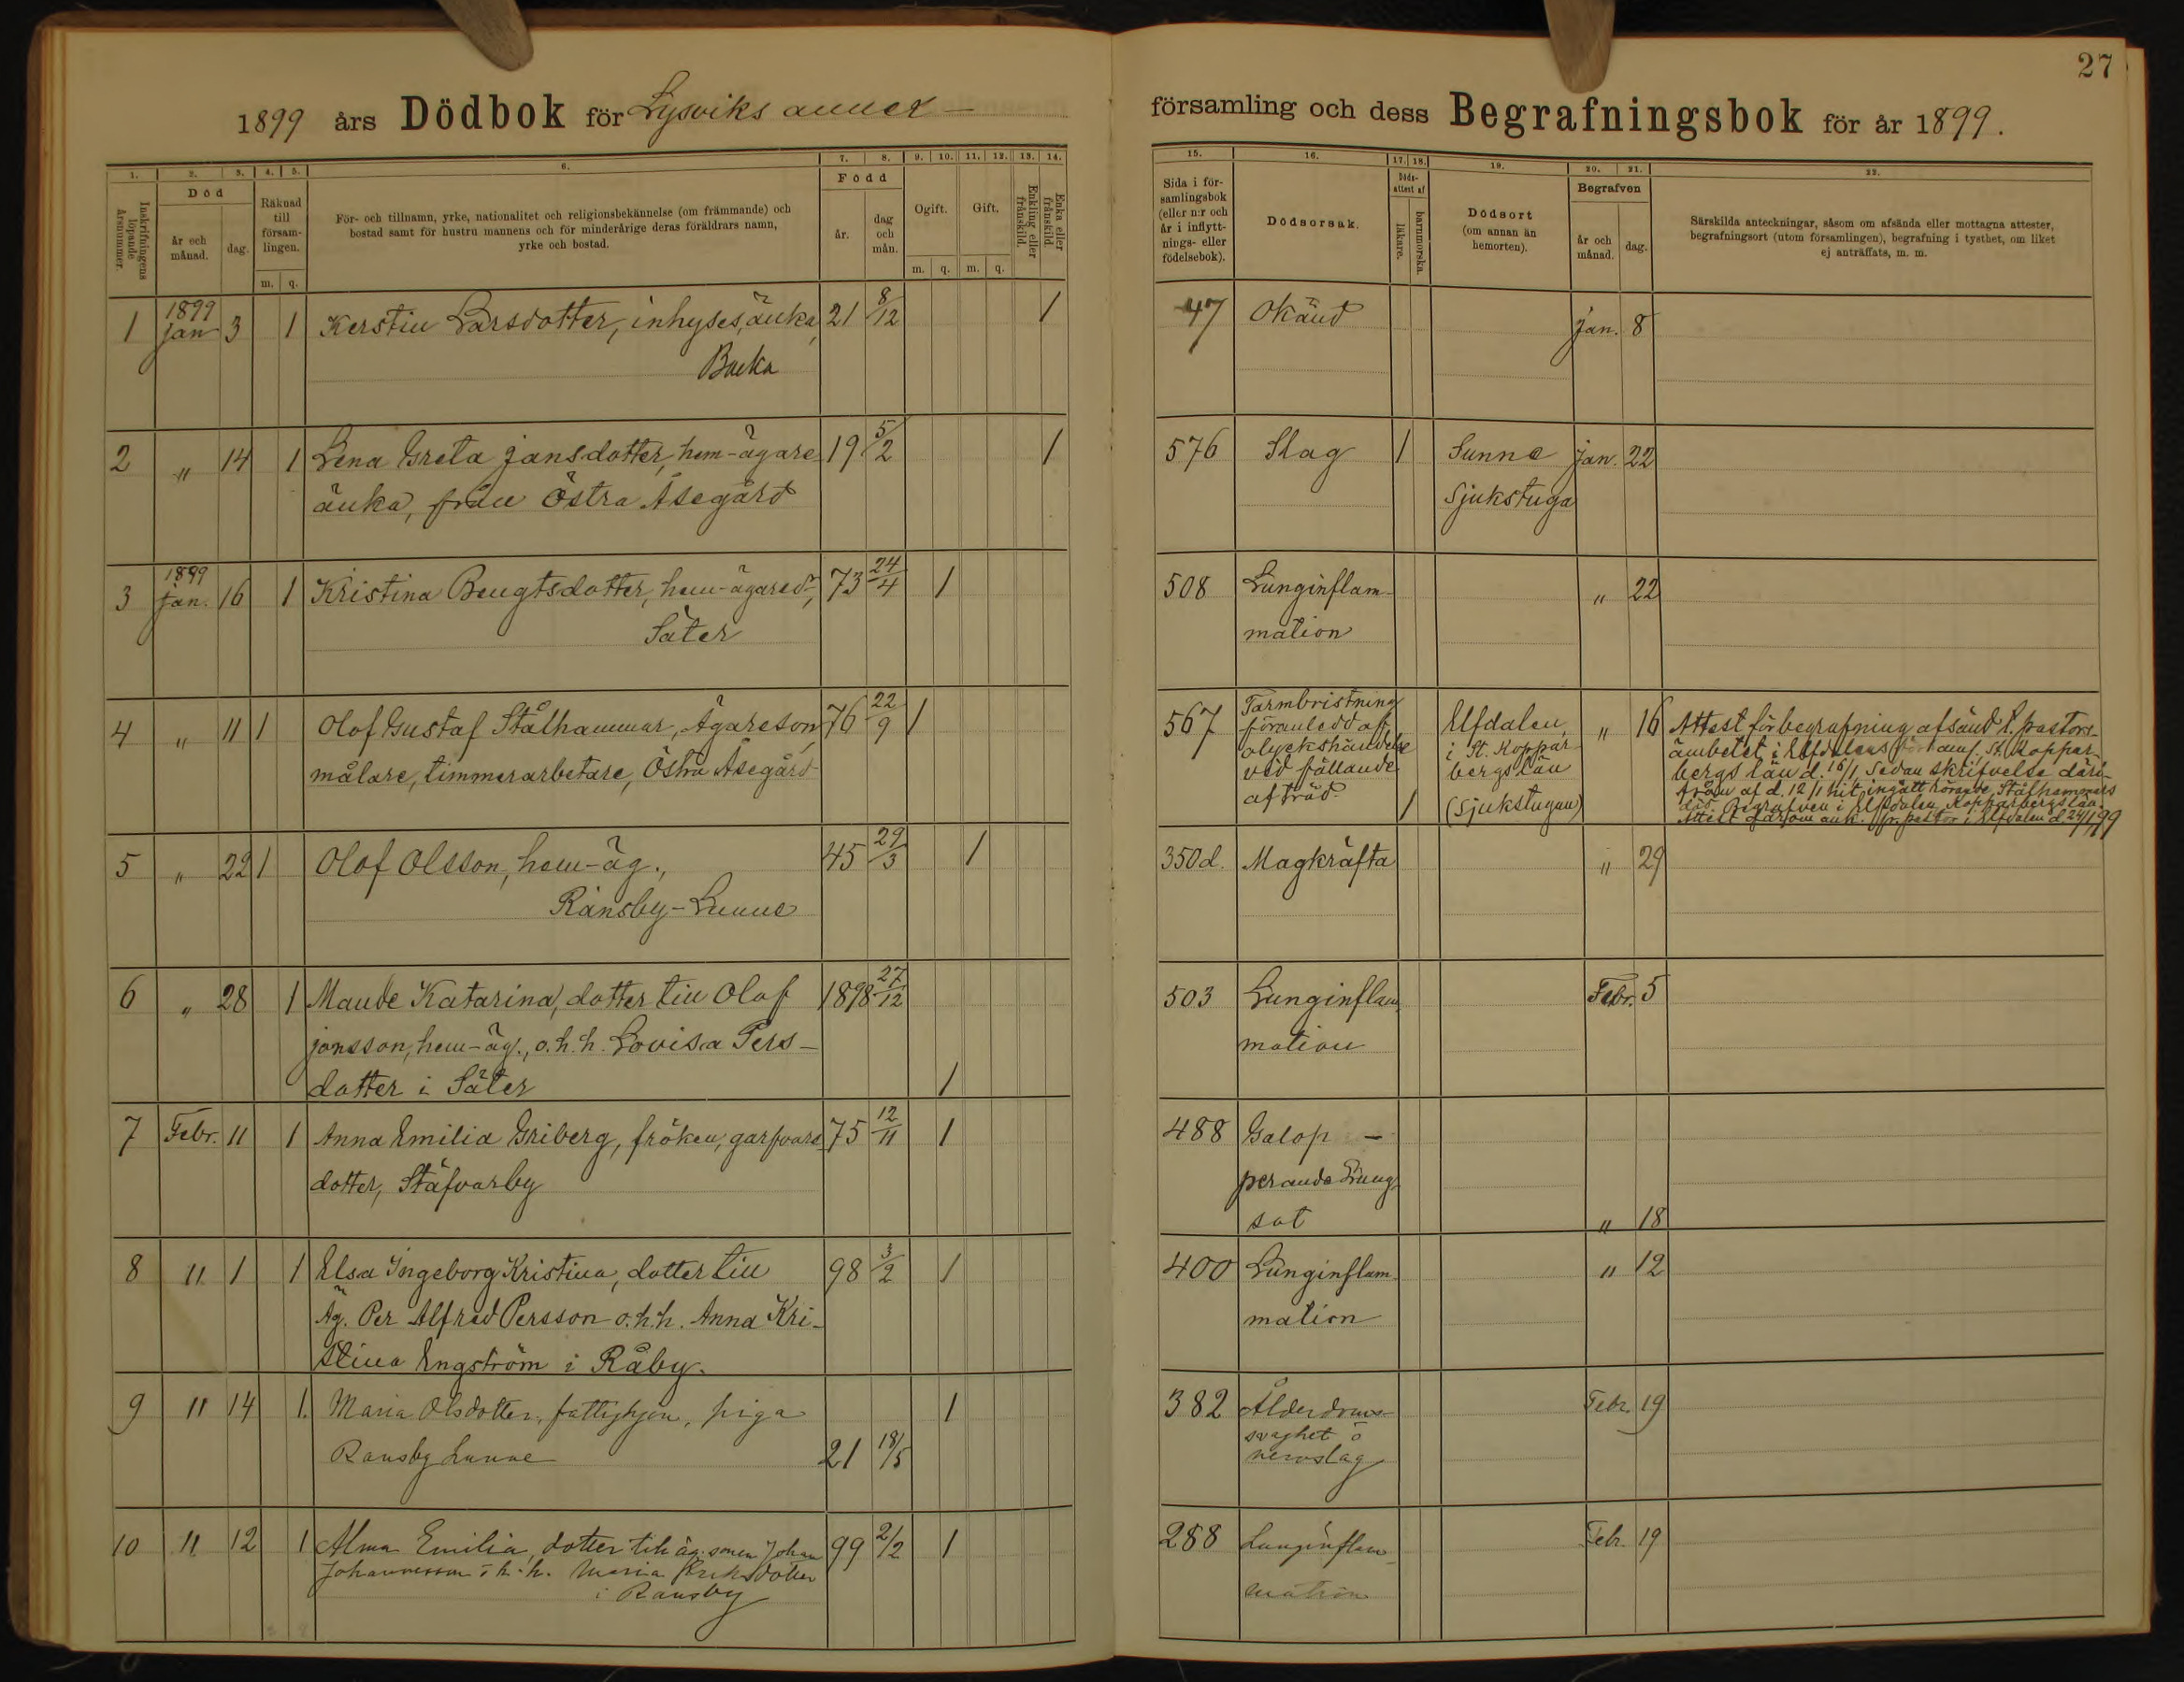 27
1899 års Dödbok för Lysviks annex
församling och dess Begrafningsbok för år 1899.
1. 2. 3. 4. 5. 6. 7. 8. 9. 10. 11. 12. 13. 14.
Inskrifningens löpande årsnummer.
Död
år och månad.
dag.
Räknad till församlingen.
m. q.
För- och tillnamn, yrke, nationalitet och religionsbekännelse (om främmande) och
bostad samt för hustru mannens och för minderårige deras föräldrars namn,
yrke och bostad.
Född
år.
dag och mån.
Ogift.
m. q.
Gift.
m. q.
Enkling eller frånskild.
Enka eller frånskild.
15. 16. 17. 18. 19. 20. 21. 22.
Sida i för-
samlingsbok
(eller n:r och
år i inflytt-
nings- eller
födelsebok).
Dödsorsak.
Döds-
attest af
läkare.
barnmorska.
Dödsort
(om annan än
hemorten).
Begrafven
år och
månad.
dag.
Särskilda anteckningar, såsom om afsända eller mottagna attester,
begrafningsort (utom församlingen), begrafning i tysthet, om liket
ej anträffats, m. m.
1 1899 jan 3 1 Kerstin Larsdotter, inhyses, änka, 21 8/12 1
Backa
47 Okänd Jan. 8
2 " 14 1 Lena Greta Jansdotter, hem-ägare 19 5/2 1
änka, från Östra Åsegård
576 Slag 1 Sunne Jan. 22
Sjukstuga
3 1899 Jan. 16 1 Kristina Bengtsdotter, hem-ägared:r, 73 24/4 1
Säter
508 Lunginflam- " 22
mation
4 " 11 1 Olof Gustaf Stålhammar, Ägareson, 76 22/9 1
målare, timmerarbetare, Östra Åsegård
567 Tarmbristning
föranledd af
olyckshändelse
ved fällande
af träd. 1
Elfdalen,
i St. Koppar-
bergs län
(Sjukstugan)
" 16
Attest för begrafning afsänd t. pastors-
ämbetet i Elfdalens förs. St. Koppar-
bergs län d. 16/1, sedan skrifvelse däri-
från af d. 12/1 hit ingått rörande Stålhammars
död. Begrafven i Elfdalen, Kopparbergs län.
Attest därom ank. fr. pastor i Elfdalen d. 24/1 99
5 " 22 1 Olof Olsson, hem-äg., 45 29/3 1
Ransby-Lunne
350d. Magkräfta " 29
6 " 28 1 Maude Katarina, dotter till Olof 1898 27/12
Jonsson, hem-äg., o. h. h. Lovisa Pers-
dotter i Säter 1
503 Lunginflam- Febr. 5
mation
7 Febr. 11 1 Anna Emilia Griberg, fröken, garfvare- 75 12/11 1
dotter, Stäfvarby
488 Galop-
perande Lung-
sot " 18
8 " 1 1 Elsa Ingeborg Kristina, dotter till 98 3/2 1
Äg. Per Alfred Persson o. h. h. Anna Kri-
stina Engström i Råby.
400 Lunginflam- " 12
mation
9 " 14 1. Maria Olsdotter, fattighjon, piga 1
Ransby Lunne 21 18/5
382 Ålderdoms- Febr. 19
svaghet o
nervslag
10 " 12 1 Alma Emilia, dotter till äg. sonen Johan 99 2/2 1
Johannesson o h. h. Maria Eriksdotter
i Ransby
288 Lunginflam- Febr. 19
mation